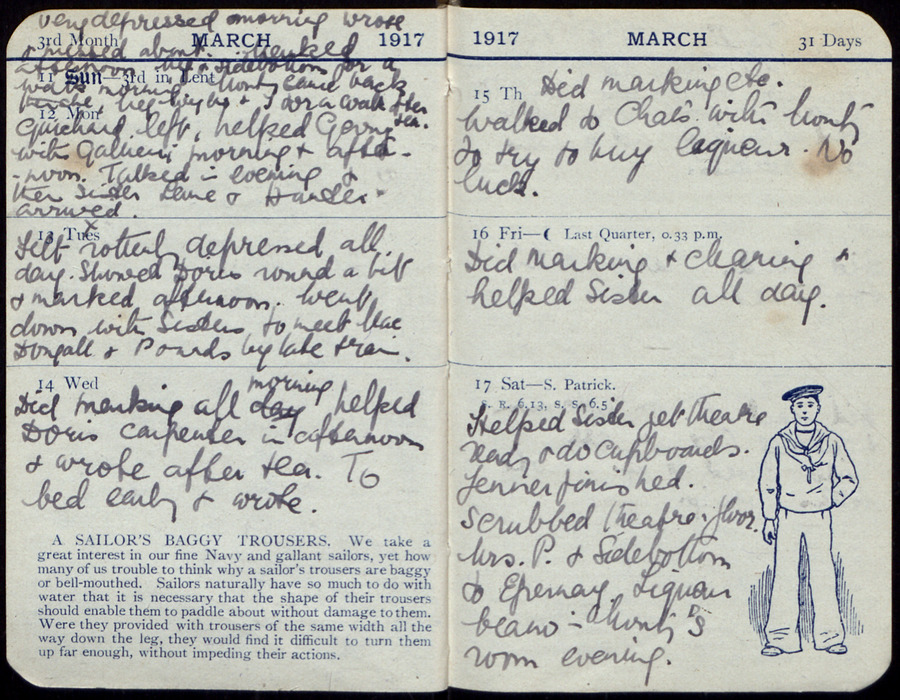 very depressed morning wrote
3rd Month MARCH 1917
& messed about. marked
afternoon. Met Sidebottom for a
11 Sun—3rd in Lent
walk morning. Monty came back
& I for a walk after
12 Mon
tea.
Guichard left, helped
with Galheni morning & after-
-noon. Talked in evening &
then Sister Lane &
arrived.
13 Tues
Felt rottenly depressed all
day. Showed Doris round a bit
& marked afternoon. Went
down with Sisters to meet Mac
Dougall & Pounds by late train.
14 Wed
morning
Did marking all day helped
Doris carpenter in afternoon
& wrote after tea. To
bed early & wrote.
A SAILOR'S BAGGY TROUSERS. We take a
great interest in our fine Navy and gallant sailors, yet how
many of us trouble to think why a sailor's trousers are baggy
or bell-mouthed. Sailors naturally have so much to do with
water that it is necessary that the shape of their trousers
should enable them to paddle about without damage to them.
Were they provided with trousers of the same width all the
way down the leg, they would find it difficult to turn them
up far enough, without impeding their actions.
1917 MARCH 31 Days
15 Th
Did marking etc.
Walked to Chals. with Monty
to try to buy liqueur. No
luck.
16 Fri—☾ Last Quarter, 0.33 p.m.
Did marking & charing &
helped Sister all day.
17 Sat—S. Patrick.
S. R. 6.13, S. S. 6.5
Helped Sister get theatre
ready & do cupboards.
Jenner finished.
Scrubbed theatre floor.
Mrs. P. & Sidebottom
to Epernay. Liqueur
beano – Monty's
room evening.